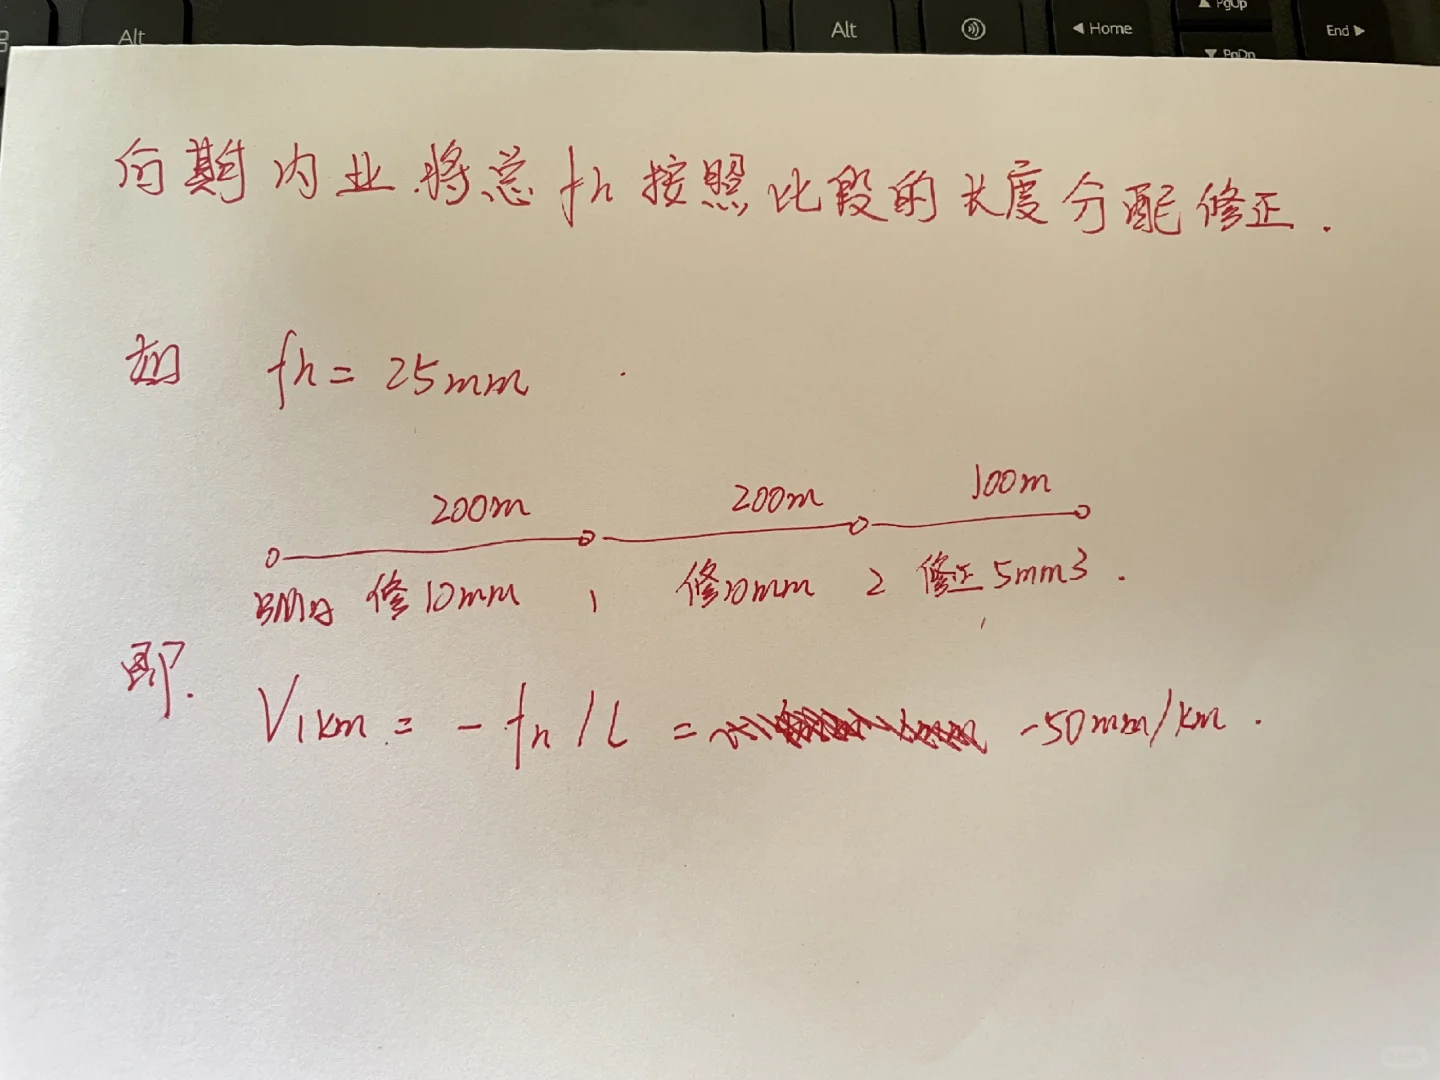 Alt
Alt
Home
PgUp
PgDn
End
向期内业将总fh按照比段的长度分配修正.
如 fh = 25mm
200m 200m 100m
BMA 修10mm 1 修10mm 2 修正5mm 3.
即.
V1km = - fh / L = -50mm/km.